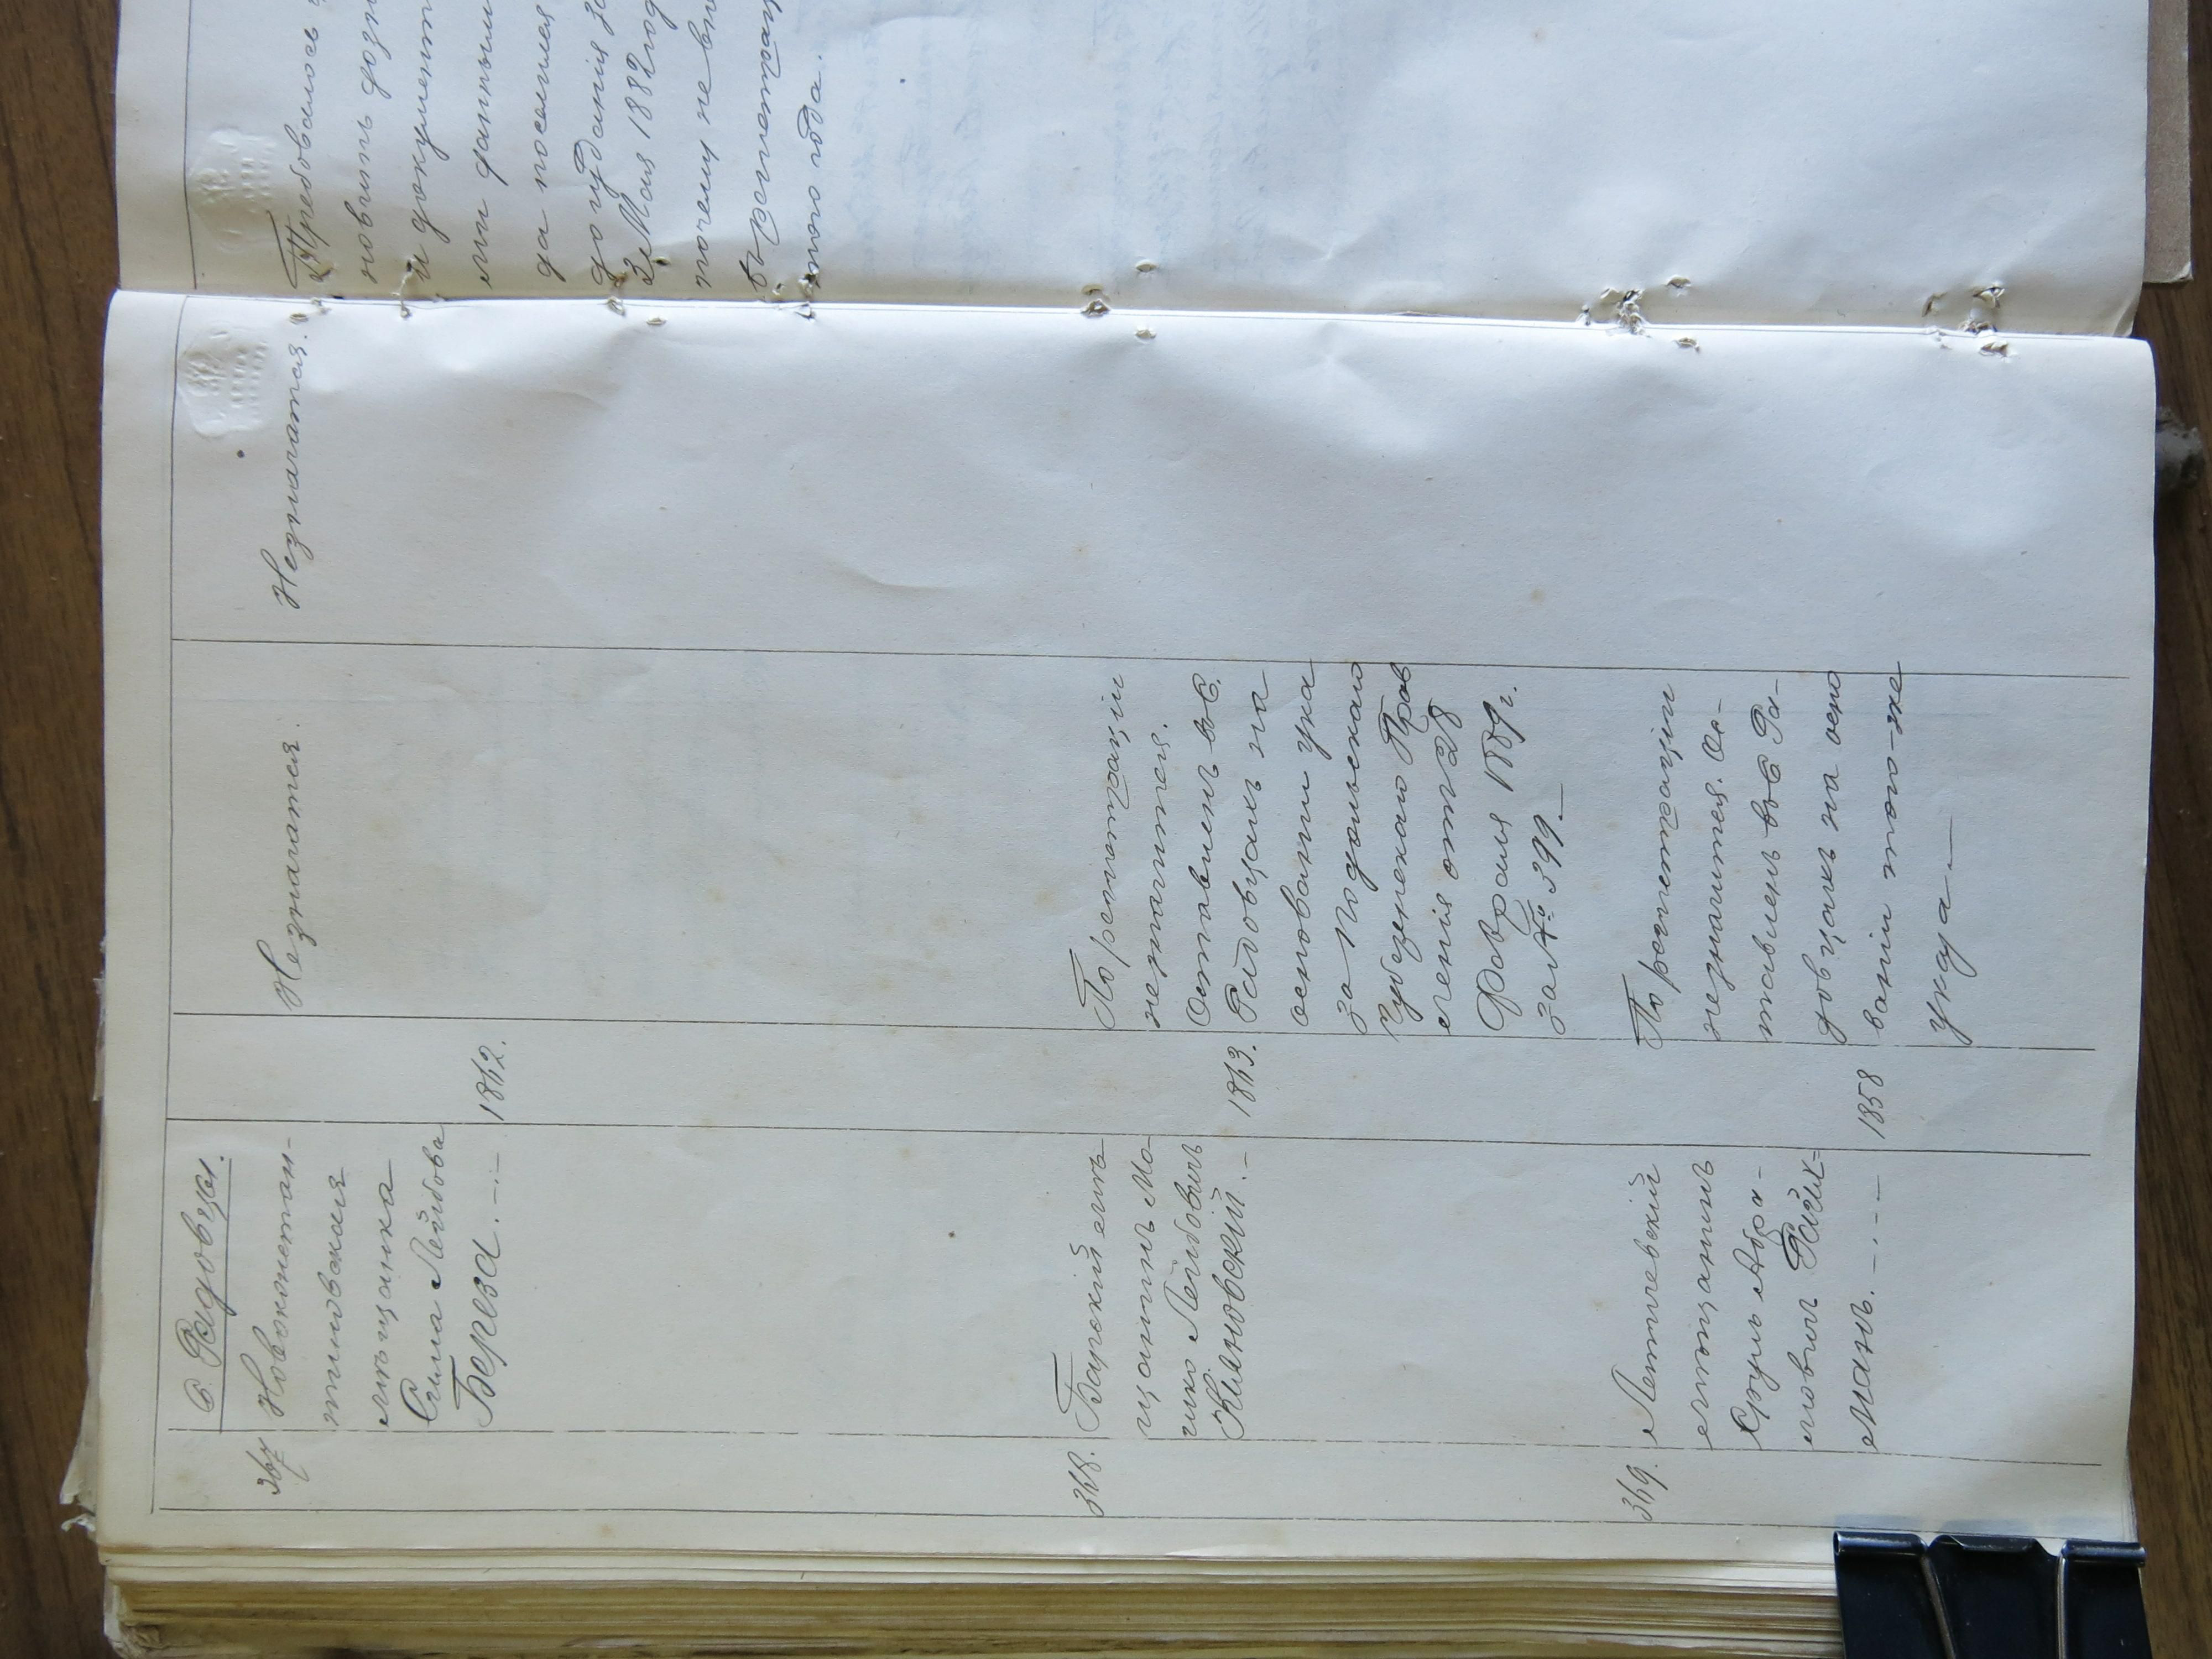 С. Радовцы.
367
Новоконстан-
тиновская
мѣщанка
Сима Лейбова
Береза. — . —
1862.
Незначатся.
Незначатся.
368.
Барскій мѣ
щанинъ Мо
шко Лейбовичъ
Кияновскій. —
1863.
По регистраціи
незначится.
Оставленъ въ С.
Радовцахъ на
основаніи ука
за Подольскаго
Губернскаго Прав
ленія отъ 28
Февраля 1889 г.
за № 399. —
369.
Летичевскій
мѣщанинъ
Сруль Абра-
мовичъ Райх=
манъ. — . — . —
1858
По регистраціи
незначится. Ос-
тавленъ въ С Ра-
довцахъ на осно
ваніи того-же
указа —
Требовалось
новить дозн
и документ
ми данными
да поселился
до изданія За
3 Мая 1882 год
почему не вн
въ регистрац
того года.